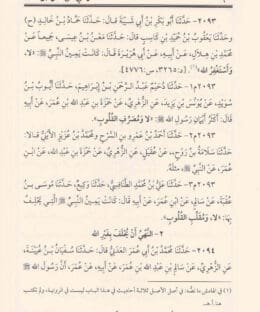 ٢٠٩٣- حَدَّثَنَا أَبُو بَكْرِ بْنُ أَبِي شَيْبَةَ قَالَ: حَدَّثَنَا حَمَّادُ بْنُ خَالِدٍ (ح)
وَحَدَّثَنَا يَعْقُوبُ بْنُ حُمَيْدِ بْنِ كَاسِبٍ قَالَ: حَدَّثَنَا مَعْنُ بْنُ عِيسَى، جَمِيعًا عَنْ
مُحَمَّدِ بْنِ هِلَالٍ، عَنْ أَبِيهِ، عَنْ أَبِي هُرَيْرَةَ قَالَ: كَانَتْ يَمِينُ النَّبِيِّ ﷺ: «لَا،
وَأَسْتَغْفِرُ اللهَ»
حَدَّثَنَا إِبْرَاهِيمَ، حَدَّثَنَا أَيُّوبُ بْنُ
سُوَيْدٍ، عَنْ يُونُسَ بْنِ يَزِيدَ، عَنِ الزُّهْرِيِّ، عَنْ حَمْزَةَ بْنِ عَبْدِ اللهِ، عَنْ أَبِيهِ
قَالَ: أَكْثَرُ أَيْمَانِ رَسُولِ اللهِ ﷺ: «لَا وَمُصَرِّفِ الْقُلُوبِ».
حَدَّثَنَا أَحْمَدُ بْنُ عَمْرِو بْنِ السَّرْحِ وَمُحَمَّدُ بْنُ عُزَيْزٍ الْأَيْلِيُّ قَالَا:
حَدَّثَنَا سَلَامَةُ بْنُ رَوْحٍ، عَنْ عُقَيْلٍ، عَنِ الزُّهْرِيِّ، عَنْ حَمْزَةَ بْنِ عَبْدِ اللهِ، عَنِ ابْنِ
عُمَرَ، عَنِ النَّبِيِّ ﷺ، مِثْلَهُ.
حَدَّثَنَا عَلِيُّ بْنُ مُحَمَّدٍ الطَّنَافِسِيُّ، حَدَّثَنَا وَكِيعٌ، حَدَّثَنَا مُوسَى بْنُ
عُقْبَةَ، عَنْ سَالِمٍ، عَنِ ابْنِ عُمَرَ قَالَ: كَانَتْ يَمِينُ النَّبِيِّ ﷺ الَّتِي يَحْلِفُ
بِهَا: «لَا، وَمُقَلِّبِ الْقُلُوبِ».
٢- النَّهْيُ أَنْ يُحْلَفَ بِغَيْرِ اللهِ
٢٠٩٤- حَدَّثَنَا مُحَمَّدُ بْنُ أَبِي عُمَرَ الْعَدَنِيُّ قَالَ: حَدَّثَنَا سُفْيَانُ بْنُ عُيَيْنَةَ،
عَنِ الزُّهْرِيِّ، عَنْ سَالِمِ بْنِ عَبْدِ اللهِ بْنِ عُمَرَ، عَنْ أَبِيهِ، عَنْ عُمَرَ، أَنَّ رَسُولَ اللهِ ﷺ
(١) في الهامش ما نصُّه: في أصل الأصل ثلاثة أحاديث في هذا الباب ليست في الرواية، ولم تكتب